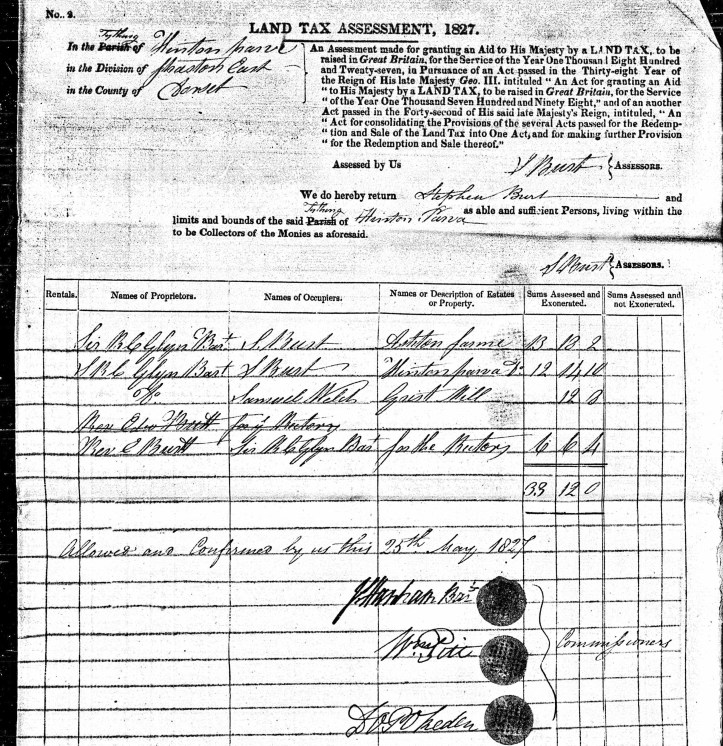 No. 2.
LAND TAX ASSESSMENT, 1827.
In the Tything Parish of Hinton parva
in the Division of Shaston East
in the County of Dorset
An Assessment made for granting an Aid to His Majesty by a LAND TAX, to be
raised in Great Britain, for the Service of the Year One Thousand Eight Hundred
and Twenty-seven, in Pursuance of an Act passed in the Thirty-eight Year of
the Reign of His late Majesty Geo. III. intituled "An Act for granting an Aid
"to His Majesty by a LAND TAX, to be raised in Great Britain, for the Service
"of the Year One Thousand Seven Hundred and Ninety Eight," and of an another
Act passed in the Forty-second of His said late Majesty's Reign, intituled, "An
"Act for consolidating the Provisions of the several Acts passed for the Redemp-
"tion and Sale of the Land Tax into One Act, and for making further Provision
"for the Redemption and Sale thereof."
Assessed by Us S Burt ASSESSORS.
We do hereby return Stephen Burt and
Tything
limits and bounds of the said Parish of Hinton Parva as able and sufficient Persons, living within the
to be Collectors of the Monies as aforesaid.
S Burt ASSESSORS.
Rentals. Names of Proprietors. Names of Occupiers. Names or Description of Estates or Property. Sums Assessed and Exonerated. Sums Assessed and not Exonerated.
Sir R C Glyn Bart S Burt Ashton farme 13 18 2
S R C Glyn Bart S Burt Hinton parva Do 12 14 10
Do Samuel Welch Grist Mill 12 8
Rev Edw Burtt for ye Rectory
Rev E Burtt Sir R C Glyn Bart for the Rectory 6 6 4
33 12 0
Allowed and Confirmed by us this 25th May 1827
J Hanham Bart
Commissioners